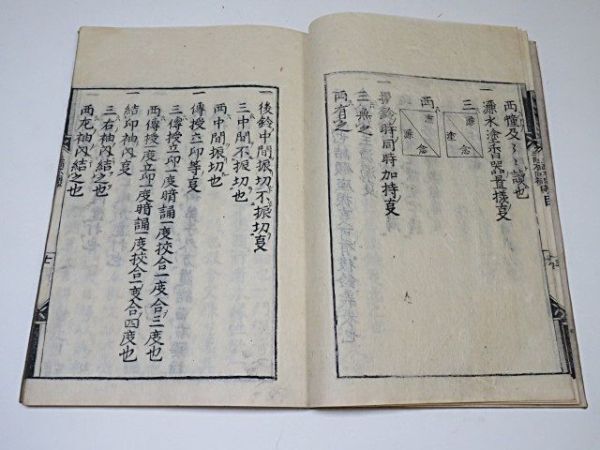 西憧及
一灑水塗香器置様事
三
灑
塗
念
西
塗
灑
念
一畢鈴時同時加持事
三無之
西有之
一後鈴中間振切不振切事
三中間不振切也
西中間振切也
一傳授立印等事
三傳授立印一度暗誦一度挍合一度合三度也
西傳授一度立印一度暗誦一度挍合一度合四度也
一結印袖内事
三右袖内結之也
西左袖内結之也